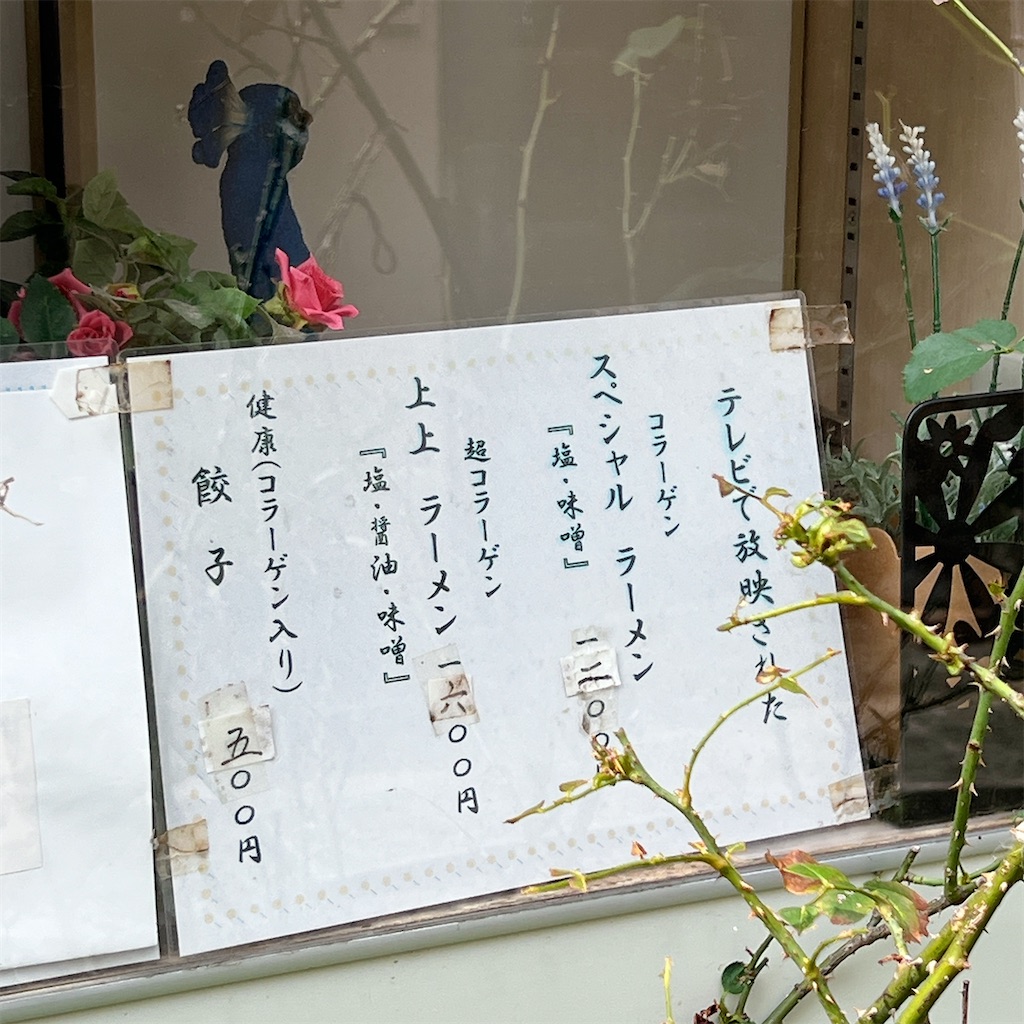 テレビで放映された
コラーゲン
スペシャル ラーメン
『塩・味噌』
一二〇〇
超コラーゲン
上上 ラーメン
『塩・醤油・味噌』
一六〇〇円
健康(コラーゲン入り)
餃子
五〇〇円